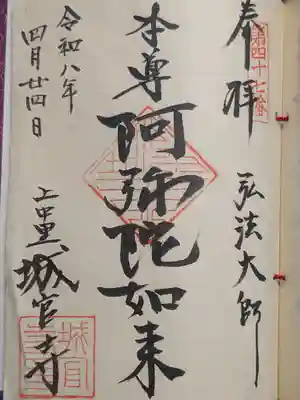 奉拝
第四十七番
弘法大師
本尊
阿弥陀如来
令和八年
四月廿四日
上中里
城官寺
城官寺